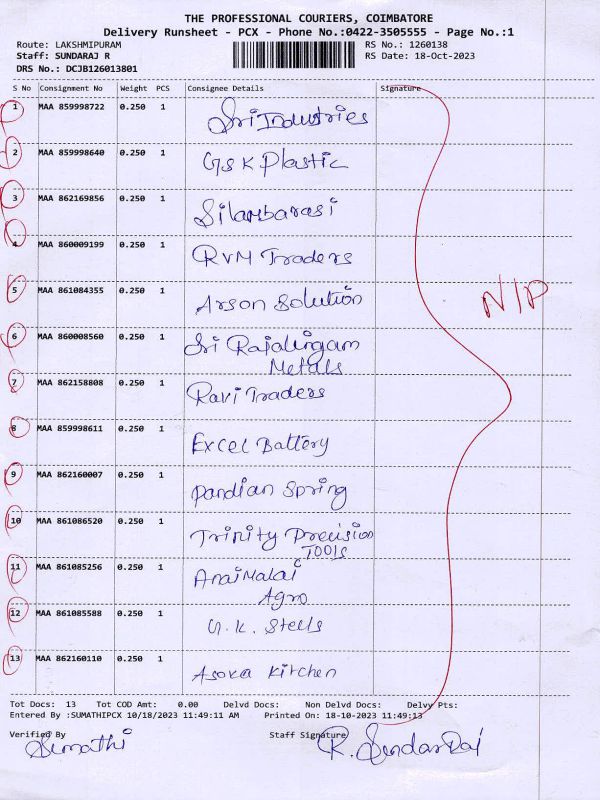 THE PROFESSIONAL COURIERS, COIMBATORE
Delivery Runsheet - PCX - Phone No.:0422-3505555 - Page No.:1
Route: LAKSHMIPURAM RS No.: 1260138
Staff: SUNDARAJ R RS Date: 18-Oct-2023
DRS No.: DCJB126013801
S No Consignment No Weight PCS Consignee Details Signature
1 MAA 859998722 0.250 1 Sri Industries
2 MAA 859998640 0.250 1 GSK Plastic
3 MAA 862169856 0.250 1 Silambarasi
4 MAA 860009199 0.250 1 RVM Traders
5 MAA 861084355 0.250 1 Arson Solution
N/P
6 MAA 860008560 0.250 1 Sri Rajalingam
Metals
7 MAA 862158808 0.250 1 Ravi Traders
8 MAA 859998611 0.250 1 Excel Battery
9 MAA 862160007 0.250 1 Pandian Spring
10 MAA 861086520 0.250 1 Trinity Precision
TOOLS
11 MAA 861085256 0.250 1 Anaimalai
Agro
12 MAA 861085588 0.250 1 G.K. Steels
13 MAA 862160110 0.250 1 Asoka Kitchen
Tot Docs: 13 Tot COD Amt: 0.00 Delvd Docs: Non Delvd Docs: Delvy Pts:
Entered By :SUMATHIPCX 10/18/2023 11:49:11 AM Printed On: 18-10-2023 11:49:13
Verified By Staff Signature
Sumathi R. Sundar Raj